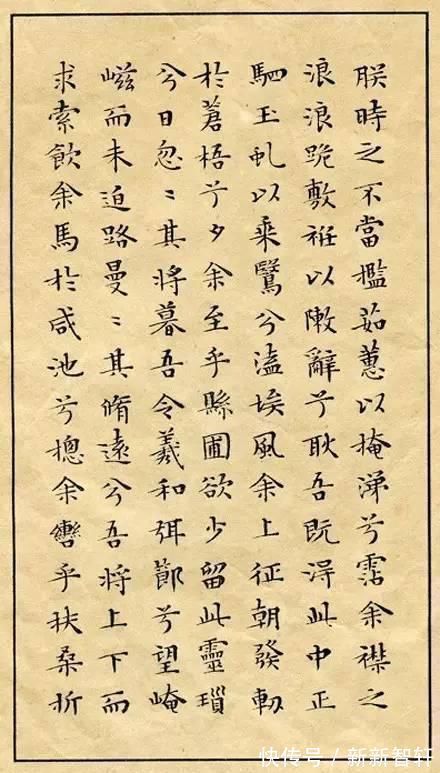 朕時之不當㩜茹蕙以掩涕兮霑余襟之
浪浪跪敷衽以陳辭兮耿吾既得此中正
駟玉虬以乘鷖兮溘埃風余上征朝發軔
於蒼梧兮夕余至乎縣圃欲少留此靈瑣
兮日忽〻其將暮吾令羲和弭節兮望崦
嵫而未迫路曼〻其脩遠兮吾將上下而
求索飲余馬於咸池兮總余轡乎扶桑折
快传号/新新智轩